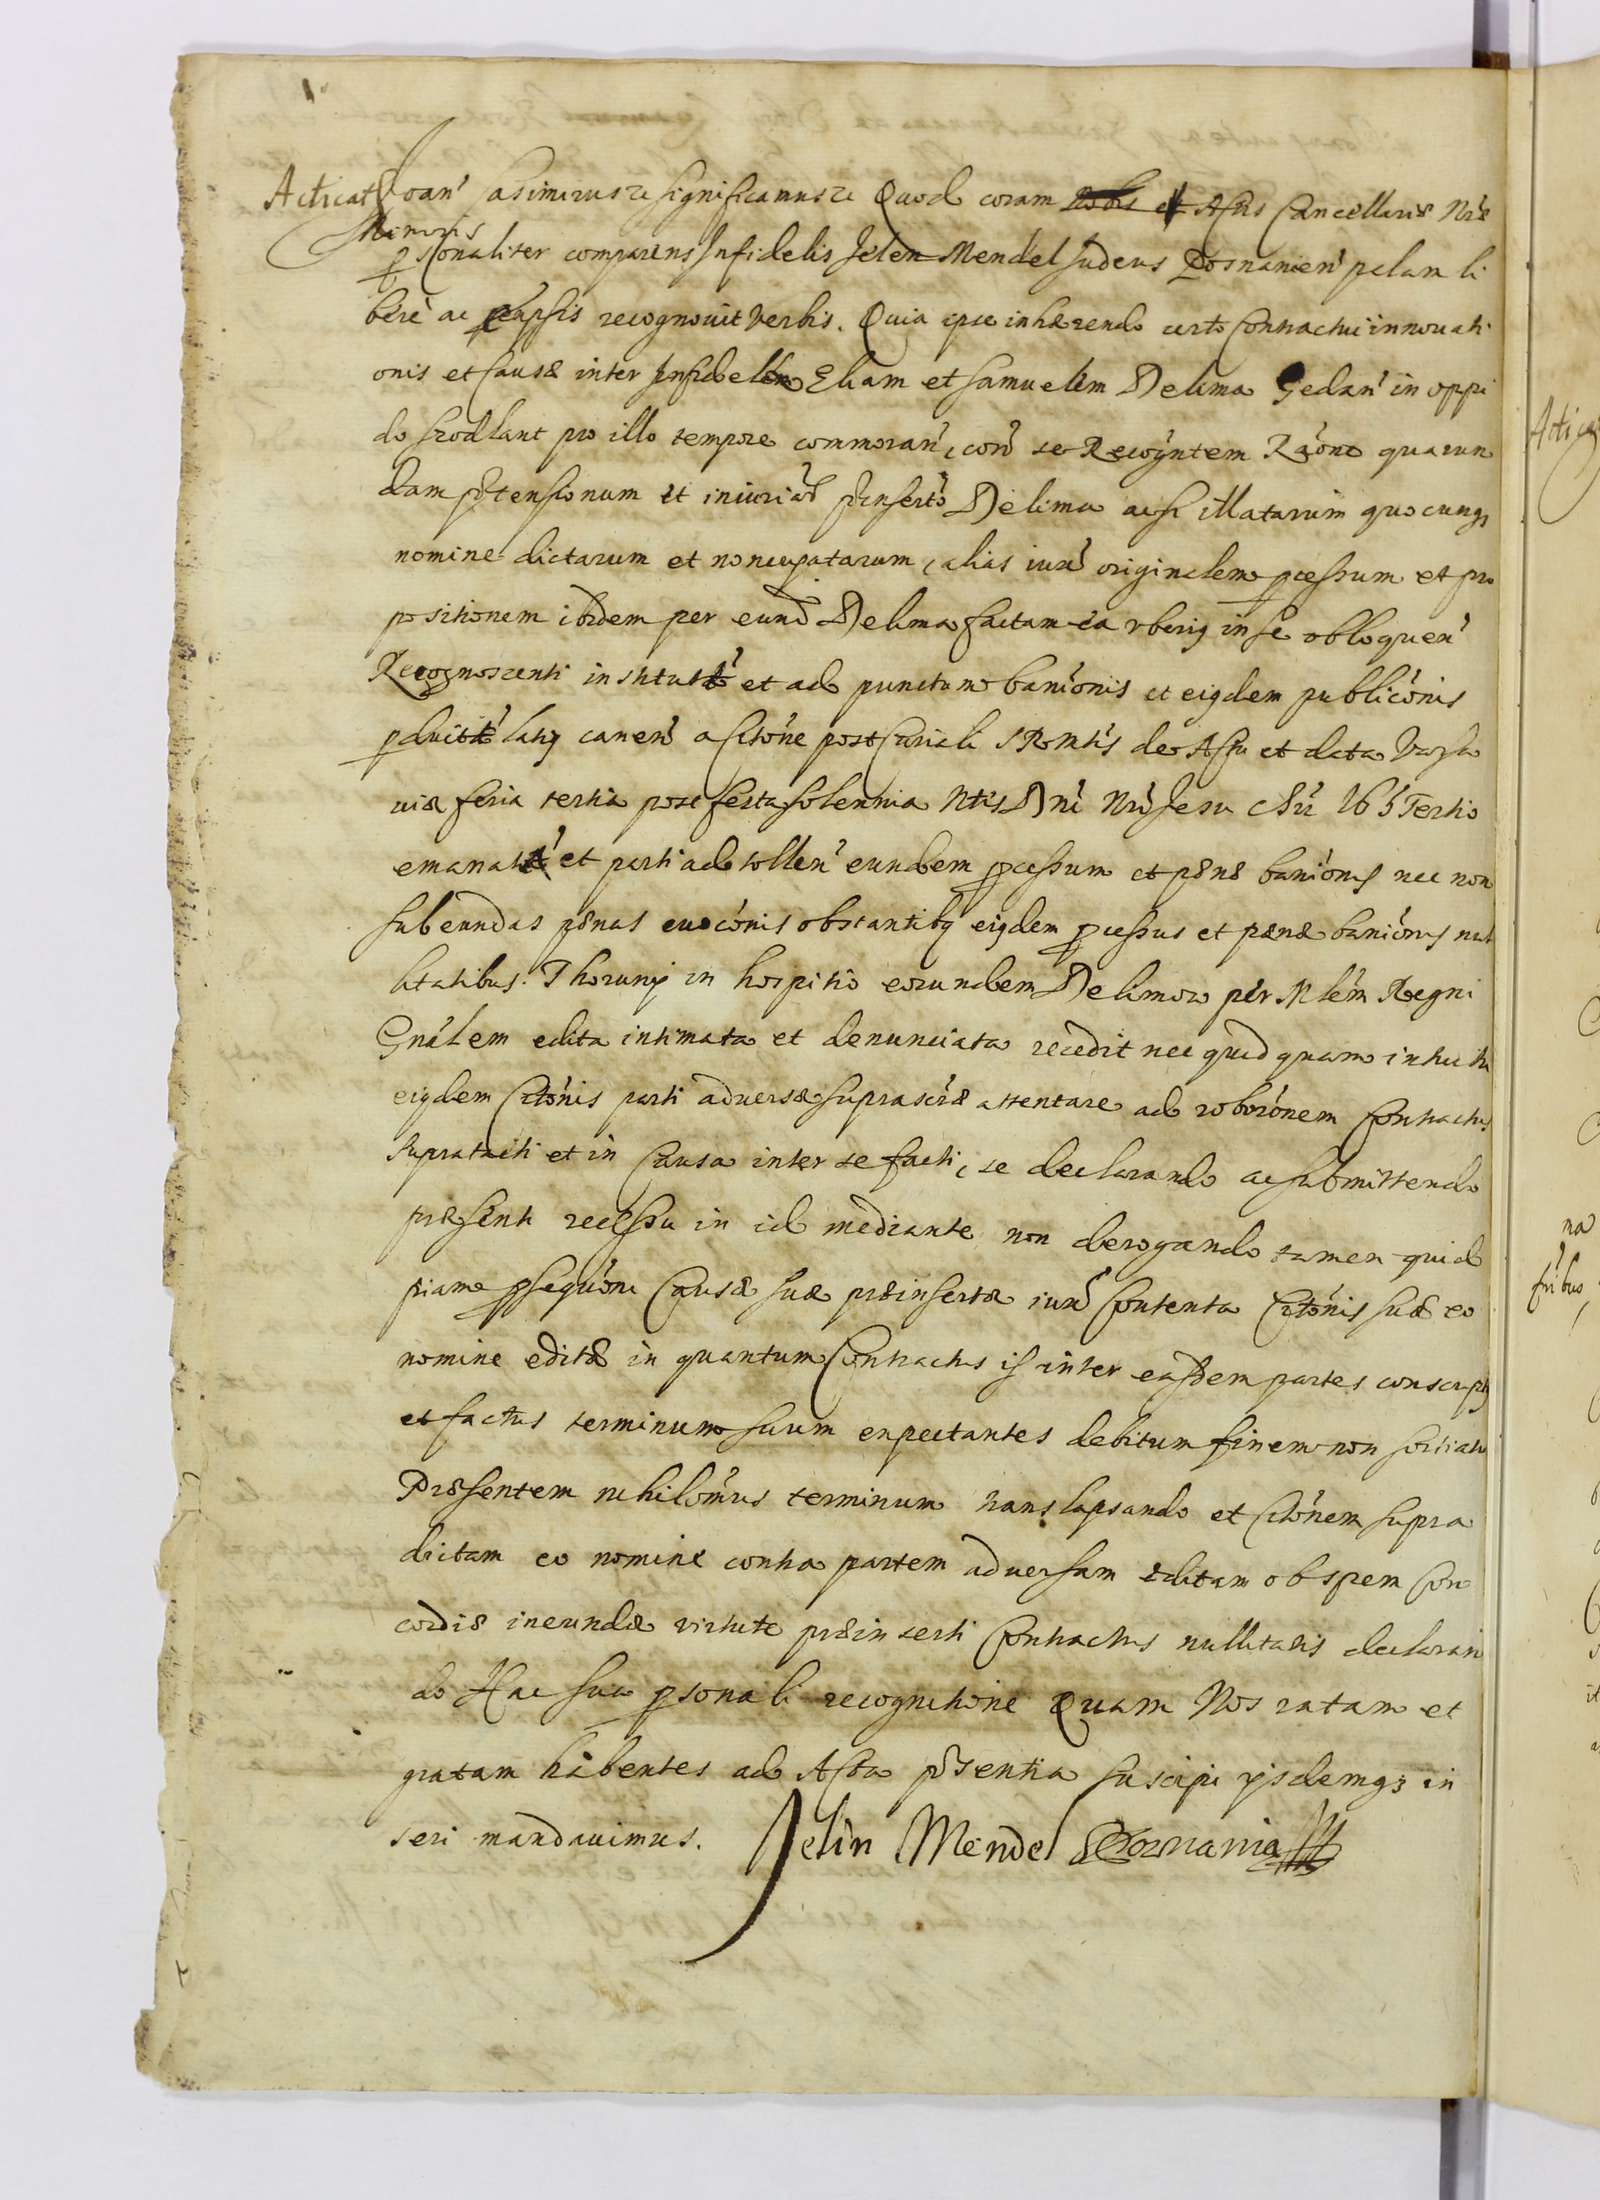 Acticat Joan' Casimirus rc significamus rc Quod coram nobis et Actis Cancellariæ Nræ
Minoris
psonaliter comparens Infidelis Jelen Mendel Judeus Posnanien' palam li
berè ac expssis recognovit verbis. Quia ipse inhærendo certo Contractui innovati
onis et Causæ inter Infidelem Eliam et Samuelem Delima Gedan' in oppi
do pro illo tempore commoran', se Recogntem Raone quarun
dam prætensionum et iniuriar Delima illatarum quocunq3
nomine dictarum et noncupatarum, alias iuxta originalem pcessum et pro
positionem ibidem per eund Delima factam ea uberig in se obloquen'
Recognoscenti et ad punctum baniónis et eigdem publicónis
latig canen' a Citóne post Curiali S R Mtis de Actu et data Varsa
uiæ feria tertia post festa solennia Ntis Dni Nri Jesu Chri 165 Tertio
emanat' et parti ad tollen' eundem pcessum et pænæ baniónis nec non
subeundas pænas euocónis obstantibg eigdem pcessus et pænæ baniónis nul
litatibus. Thorunij in hospitio eorundem Delimow per Mlem Regni
Gnälem edita intimata et denunciata recedit nec quidquam intuitu
eigdem Citónis parti adversæ suprascræ attentare ad roborónem Contractus
supratacti et in Causa inter se facti, se declarando ac submittendo
præsenti recessu in id mediante non derogando tamen quid
piam psequóni Causæ suæ præinsertæ iuxta Contenta Citónis suæ eo
nomine editæ in quantum Contractus is inter easdem partes conscriptg
et factus terminum suum expectantes debitum finem non sortiatur
Præsentem nihilomus terminum translapsando et Citónem supra
dictam eo nomine contra partem adversam editam ob spem Con
cordiæ ineundæ virtute præinserti Contractus nullitatis declaran
do Hac sua psonali recognitione Quam Nos ratam et
gratam habentes ad Acta præsentia suscipi ijsdemq3 in
seri mandavimus. Jelin Mendel Posnania